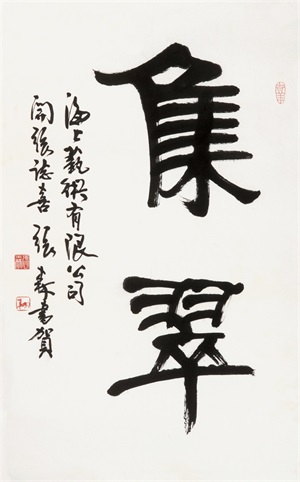 集翠
海上藝術有限公司
開張誌喜 張森書賀